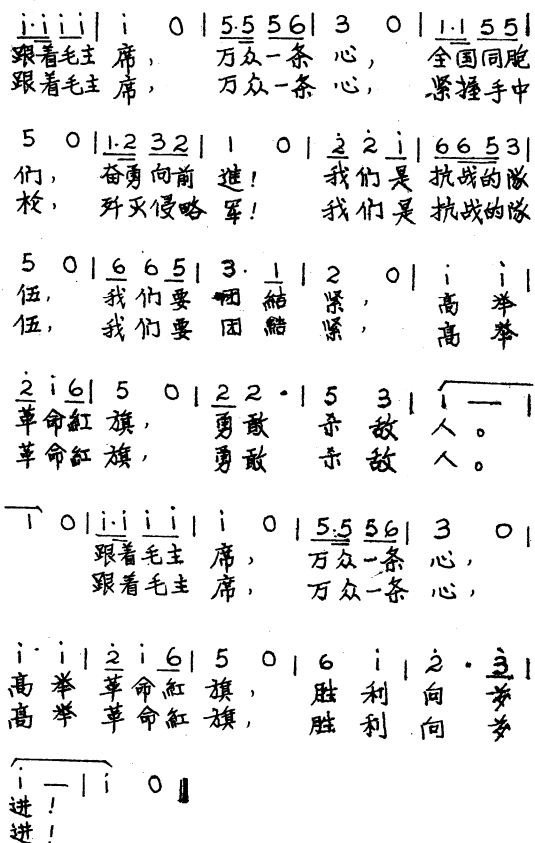 i·i i i | i 0 | 5·5 5 6 | 3 0 | 1·1 5 5 |
跟着毛主 席， 万众一条 心， 全国同胞
跟着毛主 席， 万众一条 心， 紧握手中
5 0 | 1·2 3 2 | 1 0 | 2̇ 2̇ i | 6 6 5 3 |
们， 奋勇向前 進！ 我们是 抗战的隊
枪， 歼灭侵略 军！ 我们是 抗战的隊
5 0 | 6 6 5 | 3· 1 | 2 0 | i i |
伍， 我们要 团結 紧， 高 举
伍， 我们要 团結 紧， 高 举
2̇ i 6 | 5 0 | 2 2 · | 5 3 | i — |
革命紅 旗， 勇敢 杀 敌 人。
革命紅 旗， 勇敢 杀 敌 人。
i 0 | i·i i i | i 0 | 5·5 5 6 | 3 0 |
跟着毛主 席， 万众一条 心，
跟着毛主 席， 万众一条 心，
i· i | 2̇ i 6 | 5 0 | 6 i | 2̇ · 3̇ |
高 举 革命紅 旗， 胜 利 向
高 举 革命紅 旗， 胜 利 向
i — | i 0 ‖
进！
进！